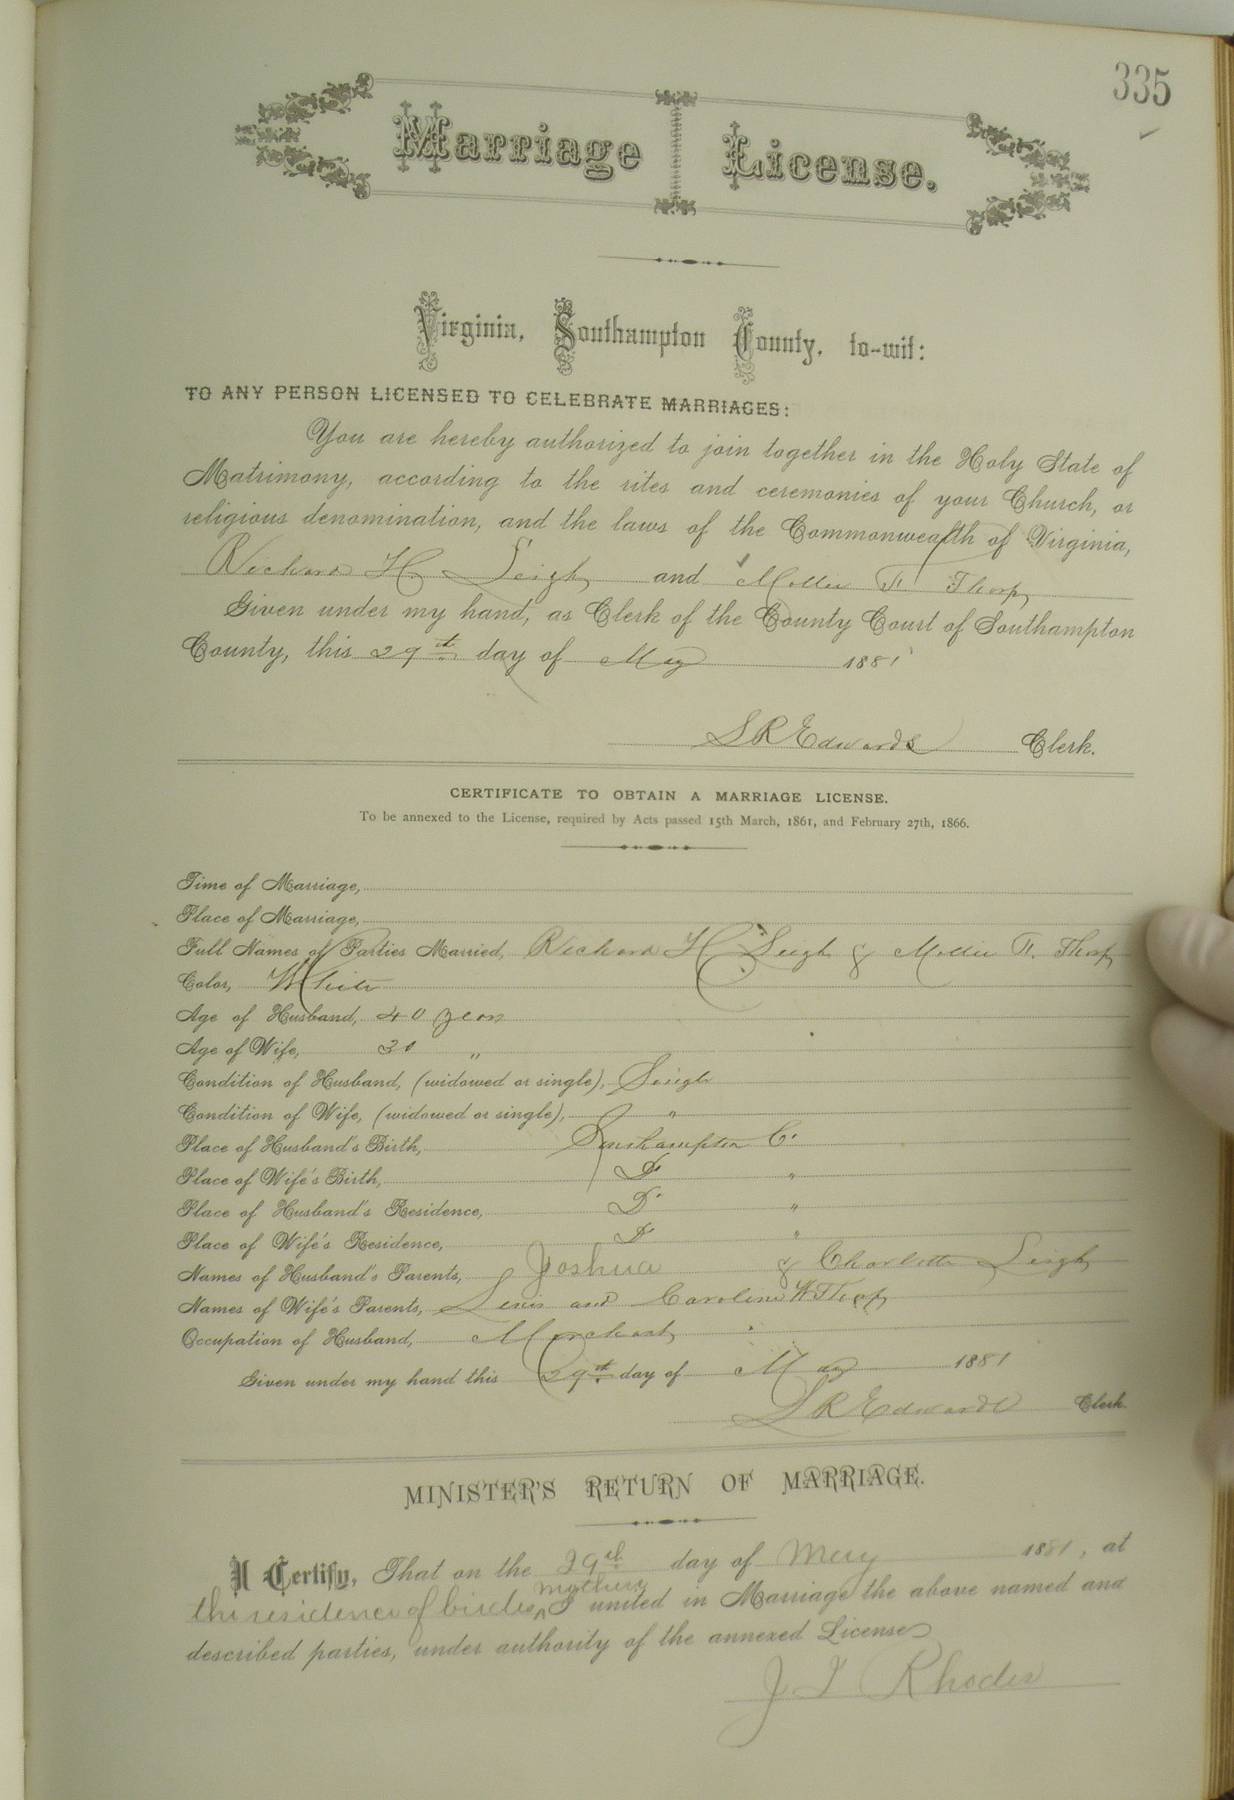 335
Marriage License.
Virginia, Southampton County, to-wit:
TO ANY PERSON LICENSED TO CELEBRATE MARRIAGES:
You are hereby authorized to join together in the Holy State of
Matrimony, according to the rites and ceremonies of your Church, or
religious denomination, and the laws of the Commonwealth of Virginia,
Richard H Leigh and Mollie F. Thorp
Given under my hand, as Clerk of the County Court of Southampton
County, this 29th day of May 1881
S R Edwards Clerk.
CERTIFICATE TO OBTAIN A MARRIAGE LICENSE.
To be annexed to the License, required by Acts passed 15th March, 1861, and February 27th, 1866.
Time of Marriage,
Place of Marriage,
Full Names of Parties Married, Richard H Leigh & Mollie F. Thorp
Color, White
Age of Husband, 40 years
Age of Wife, "
Condition of Husband, (widowed or single), Single
Condition of Wife, (widowed or single), "
Place of Husband's Birth, Southampton Co.
Place of Wife's Birth, Do "
Place of Husband's Residence, Do "
Place of Wife's Residence, Do "
Names of Husband's Parents, Joshua & Charlotte Leigh
Names of Wife's Parents, Lewis and Caroline W Thorp
Occupation of Husband, Merchant
Given under my hand this 29th day of May 1881
S R Edwards Clerk.
MINISTER'S RETURN OF MARRIAGE.
I Certify, That on the 29th day of May 1881, at
the residence of brides mother I united in Marriage the above named and
described parties, under authority of the annexed License
J T Rhodes